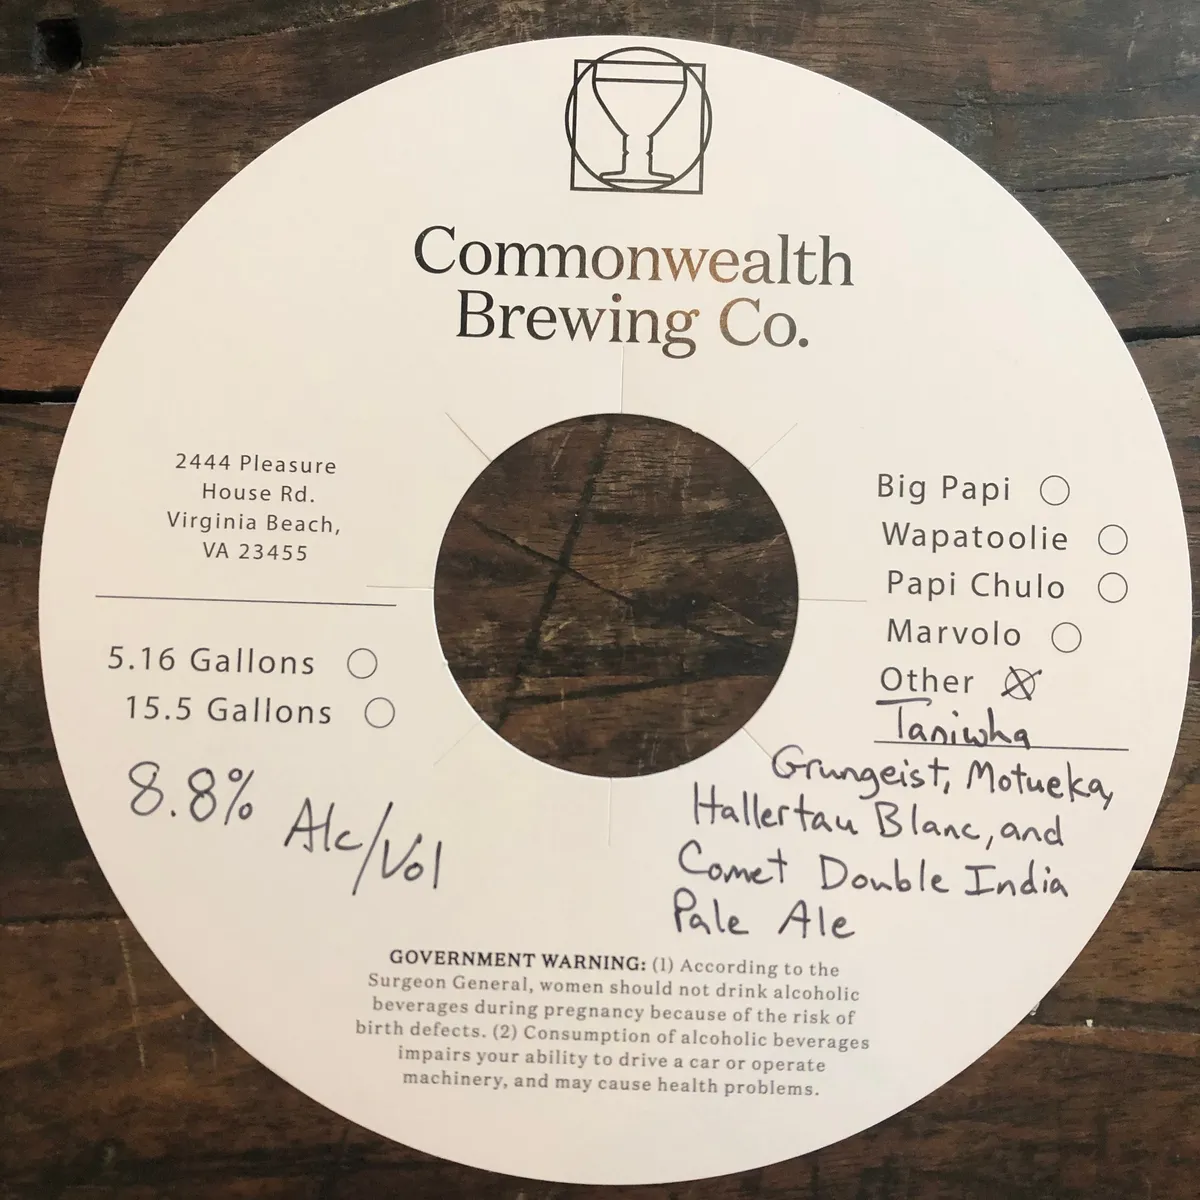 Commonwealth
Brewing Co.
2444 Pleasure
House Rd.
Virginia Beach,
VA 23455
5.16 Gallons
15.5 Gallons
8.8% Alc/Vol
Big Papi
Wapatoolie
Papi Chulo
Marvolo
Other
Taniwha
Grungeist, Motueka,
Hallertau Blanc, and
Comet Double India
Pale Ale
GOVERNMENT WARNING: (1) According to the
Surgeon General, women should not drink alcoholic
beverages during pregnancy because of the risk of
birth defects. (2) Consumption of alcoholic beverages
impairs your ability to drive a car or operate
machinery, and may cause health problems.